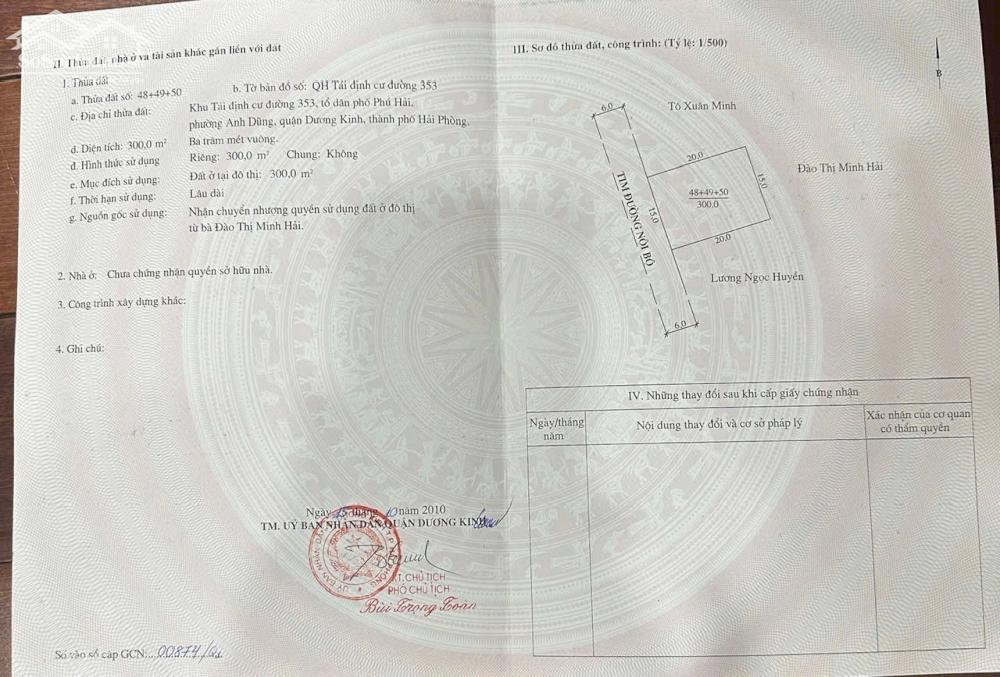 II. Thửa đất, nhà ở và tài sản khác gắn liền với đất
1. Thửa đất
a. Thửa đất số: 48+49+50
b. Tờ bản đồ số: QH Tái định cư đường 353
c. Địa chỉ thửa đất:
Khu Tái định cư đường 353, tổ dân phố Phú Hải,
phường Anh Dũng, quận Dương Kinh, thành phố Hải Phòng.
d. Diện tích: 300,0 m²
Ba trăm mét vuông.
đ. Hình thức sử dụng
Riêng: 300,0 m² Chung: Không
e. Mục đích sử dụng:
Đất ở tại đô thị: 300,0 m²
f. Thời hạn sử dụng:
Lâu dài
g. Nguồn gốc sử dụng:
Nhận chuyển nhượng quyền sử dụng đất ở đô thị
từ bà Đào Thị Minh Hải.
2. Nhà ở: Chưa chứng nhận quyền sở hữu nhà.
3. Công trình xây dựng khác:
4. Ghi chú:
Ngày 15 tháng 10 năm 2010
TM. UỶ BAN NHÂN DÂN QUẬN DƯƠNG KINH
KT. CHỦ TỊCH
PHÓ CHỦ TỊCH
Bùi Trọng Toàn
Số vào sổ cấp GCN: 00874/
III. Sơ đồ thửa đất, công trình: (Tỷ lệ: 1/500)
B
6.0
Tô Xuân Minh
20.0
Đào Thị Minh Hải
15.0
TIM ĐƯỜNG NỘI BỘ
15.0
48+49+50
300.0
20.0
Lương Ngọc Huyền
6.0
IV. Những thay đổi sau khi cấp giấy chứng nhận
Ngày/tháng
năm
Nội dung thay đổi và cơ sở pháp lý
Xác nhận của cơ quan
có thẩm quyền